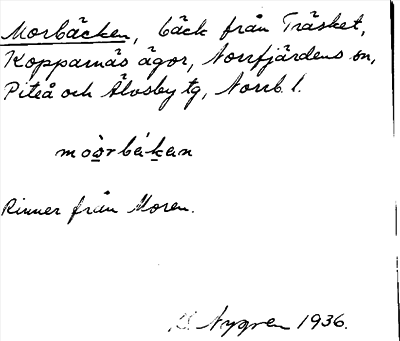 Morbäcken, bäck från Träsket,
Kopparnäs ägor, Norrfjärdens sn,
Piteå och Älvsby tg, Norrb. l.
mòơrbä́kan
Rinner från Moren.
Nygren 1936.